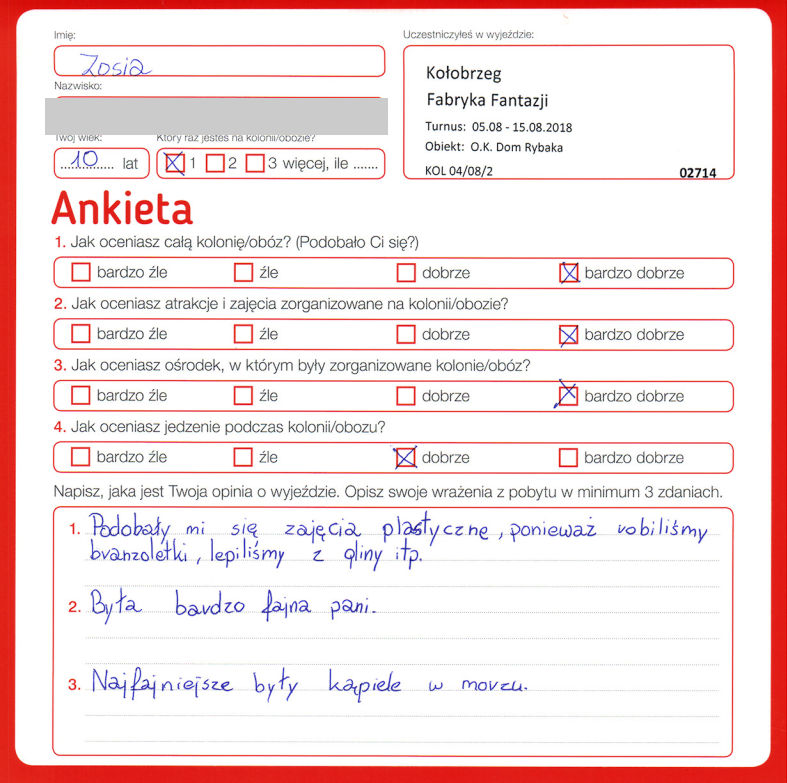 Imię:
Zosia
Nazwisko:
Twój wiek:
10 lat
Który raz jesteś na kolonii/obozie?
1 2 3 więcej, ile .......
Uczestniczyłeś w wyjeździe:
Kołobrzeg
Fabryka Fantazji
Turnus: 05.08 - 15.08.2018
Obiekt: O.K. Dom Rybaka
KOL 04/08/2 02714
Ankieta
1. Jak oceniasz całą kolonię/obóz? (Podobało Ci się?)
bardzo źle źle dobrze bardzo dobrze
2. Jak oceniasz atrakcje i zajęcia zorganizowane na kolonii/obozie?
bardzo źle źle dobrze bardzo dobrze
3. Jak oceniasz ośrodek, w którym były zorganizowane kolonie/obóz?
bardzo źle źle dobrze bardzo dobrze
4. Jak oceniasz jedzenie podczas kolonii/obozu?
bardzo źle źle dobrze bardzo dobrze
Napisz, jaka jest Twoja opinia o wyjeździe. Opisz swoje wrażenia z pobytu w minimum 3 zdaniach.
1. Podobały mi się zajęcia plastyczne, ponieważ robiliśmy
branzoletki, lepiliśmy z gliny itp.
2. Była bardzo fajna pani.
3. Najfajniejsze były kąpiele w morzu.